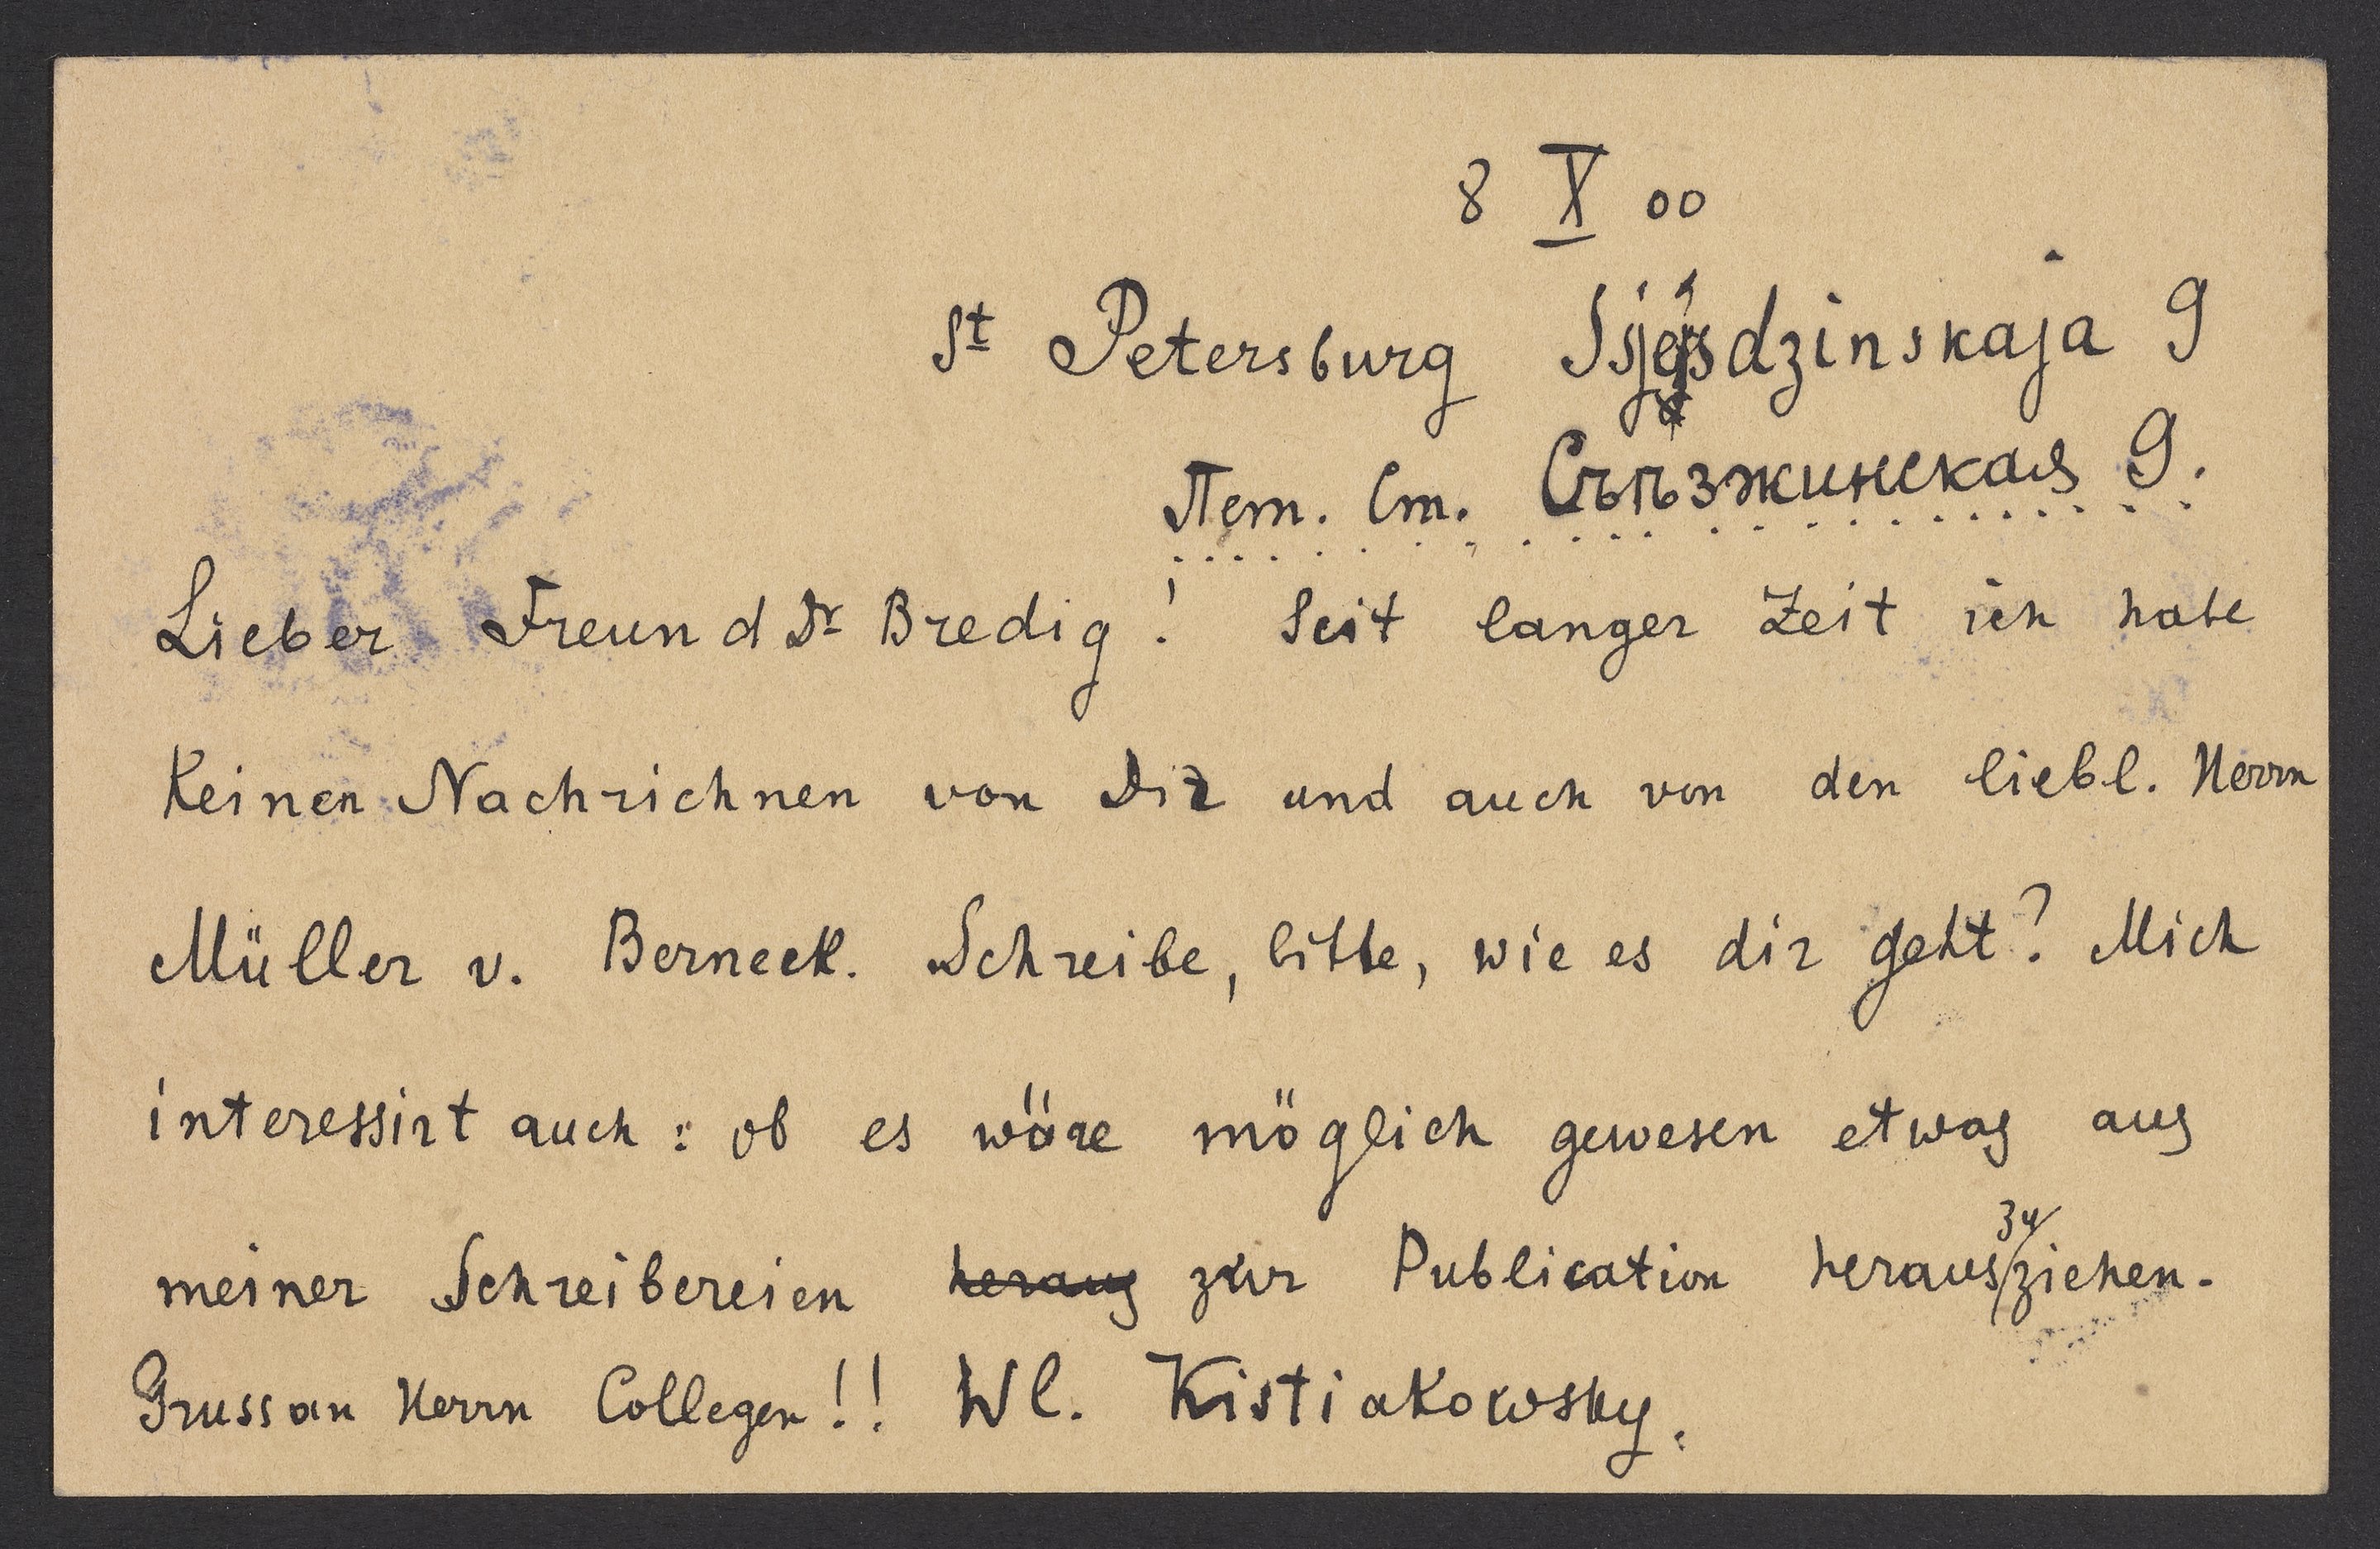 8 X 00
St Petersburg Sjesdzinskaja 9
Пет. Ст. Съѣзжинская 9.
Lieber Freund Dr Bredig! Seit langer Zeit ich habe
Keinen Nachrichnen von Dir und auch von den liebl. Herrn
Müller v. Berneck. Schreibe, bitte, wie es dir geht? Mich
interessirt auch: ob es wöre möglich gewesen etwas aus
meiner Schreibereien heraus zur Publication herauszuziehen.
Gruss an Herrn Collegen!! Wl. Kistiakowsky.